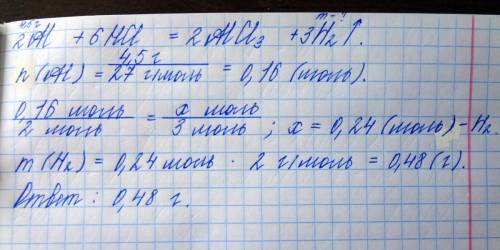 4,5г m-?
2Al + 6HCl = 2AlCl₃ + 3H₂↑.
n(Al) = 4,5 г / 27 г/моль = 0,16 (моль).
0,16 моль / 2 моль = x моль / 3 моль ; x = 0,24 (моль) - H₂.
m(H₂) = 0,24 моль · 2 г/моль = 0,48 (г).
Ответ: 0,48 г.